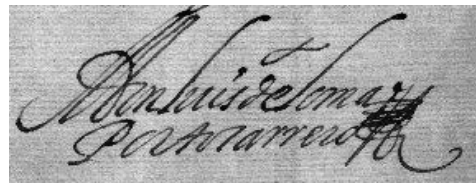 Don luis de tomar y
Portocarrero